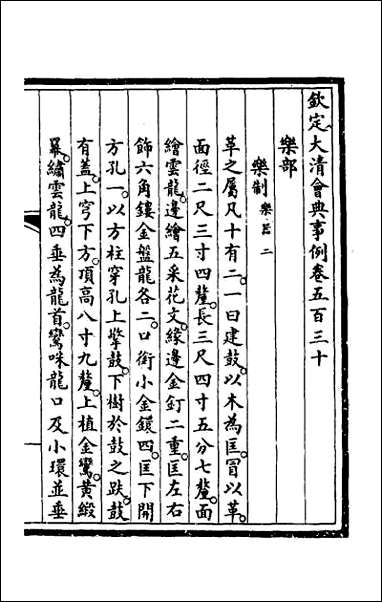 欽定大清會典事例卷五百三十
樂部
樂制樂器二
革之屬凡十有二。一曰建鼓。以木為匡。冒以革。
面徑二尺三寸四釐。長三尺四寸五分七釐。面
繪雲龍。邊繪五采花文。緣邊金釘二重。匡左右
飾六角鏤金盤龍各二。口銜小金鐶四。匡下開
方孔一。以方柱穿孔上擎鼓。下樹於鼓之趺。鼓
有蓋。上穹下方。頂高八寸九釐。上植金鸞。黃緞
羃。繡雲龍。四垂為龍首。鸞咮龍口及小環並垂